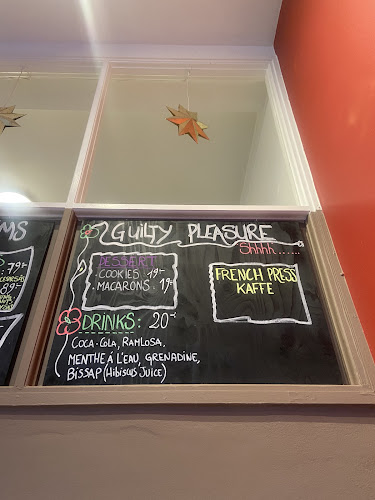 MS
79:-
89:-
GUILTY PLEASURE
Shhhh......
DESSERT
COOKIES 19:-
MACARONS: 19:-
FRENCH PRESS
KAFFE
DRINKS: 20:-
COCA-COLA, RAMLOSA,
MENTHE Á L'EAU, GRENADINE,
BISSAP (HIBISCUS JUICE)